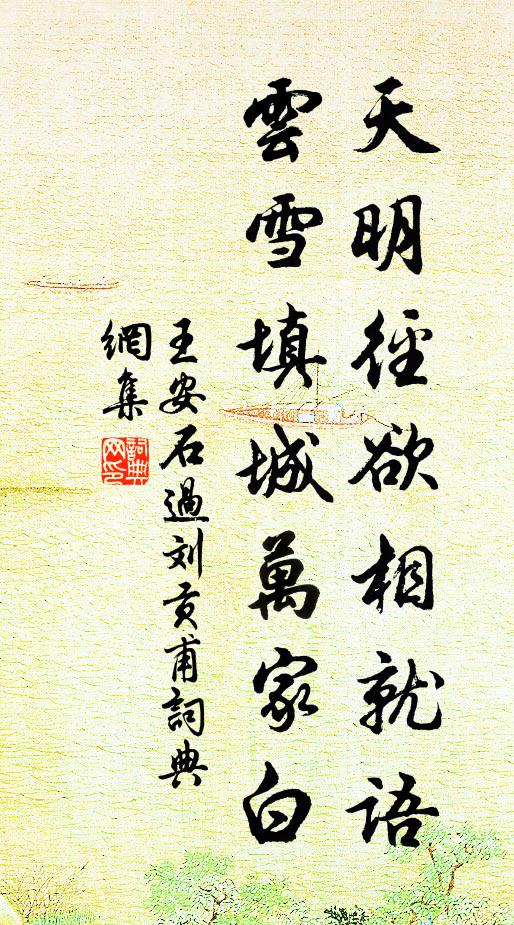 天明徑欲相就語
雲雪填城萬家白
王安石過刘贡甫詞典
網集
詞典
网印